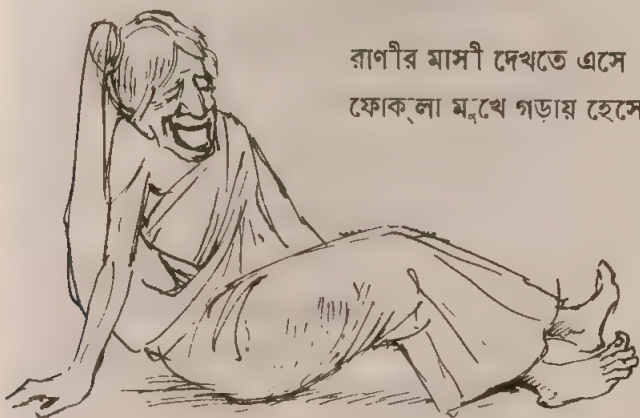 রাণীর মাসী দেখতে এসে
ফোক্‌লা মুখে গড়ায় হেসে